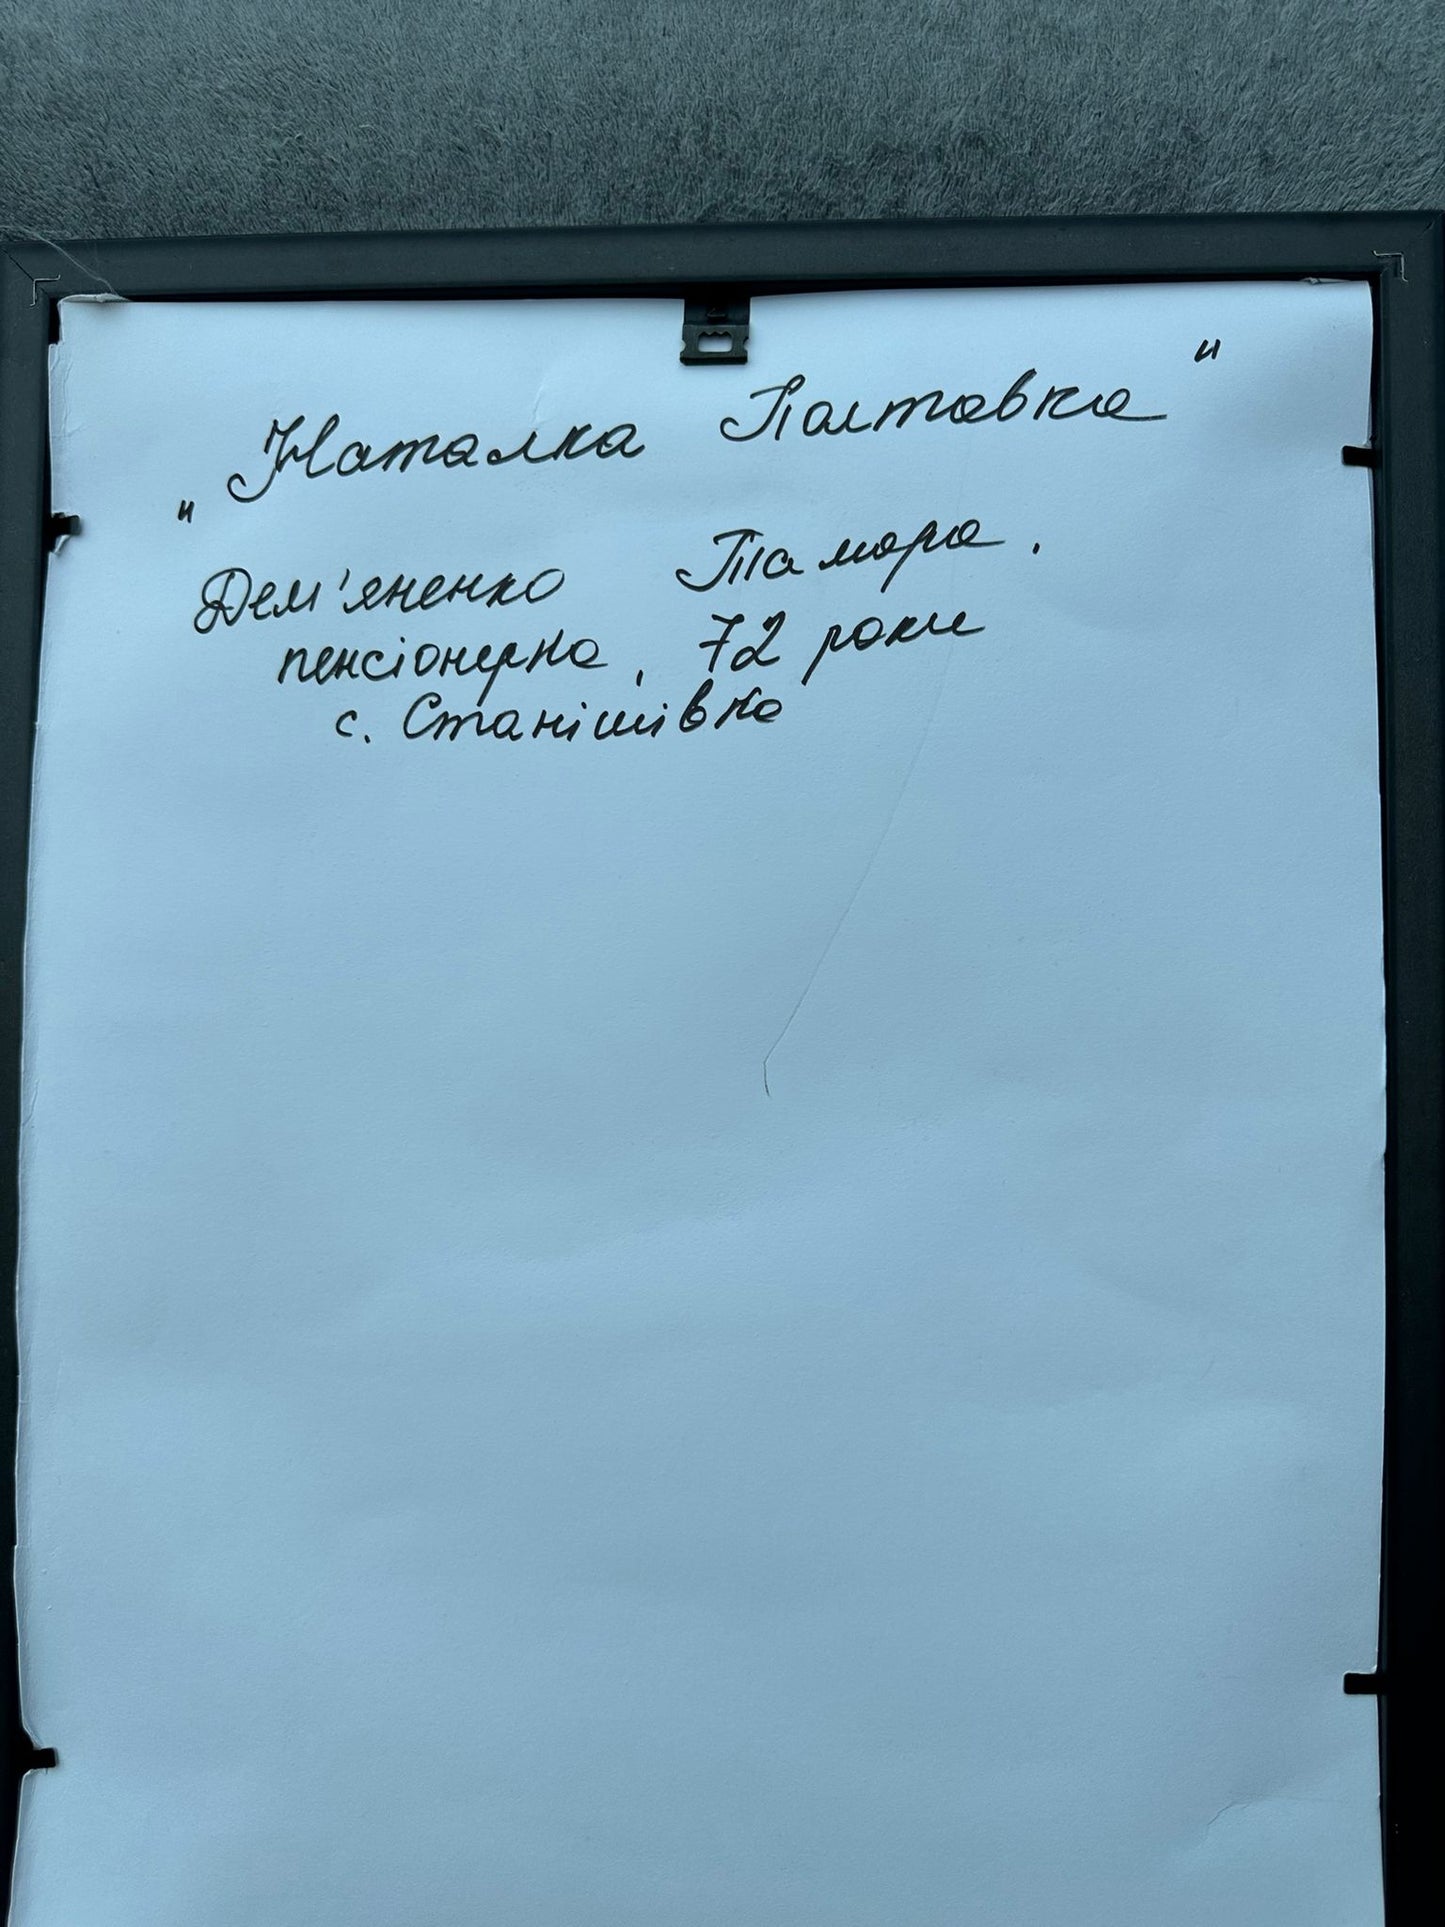 „Наталка Полтавка"
Дем'яненко Тамара.
пенсіонерка, 72 роки
с. Станішівка